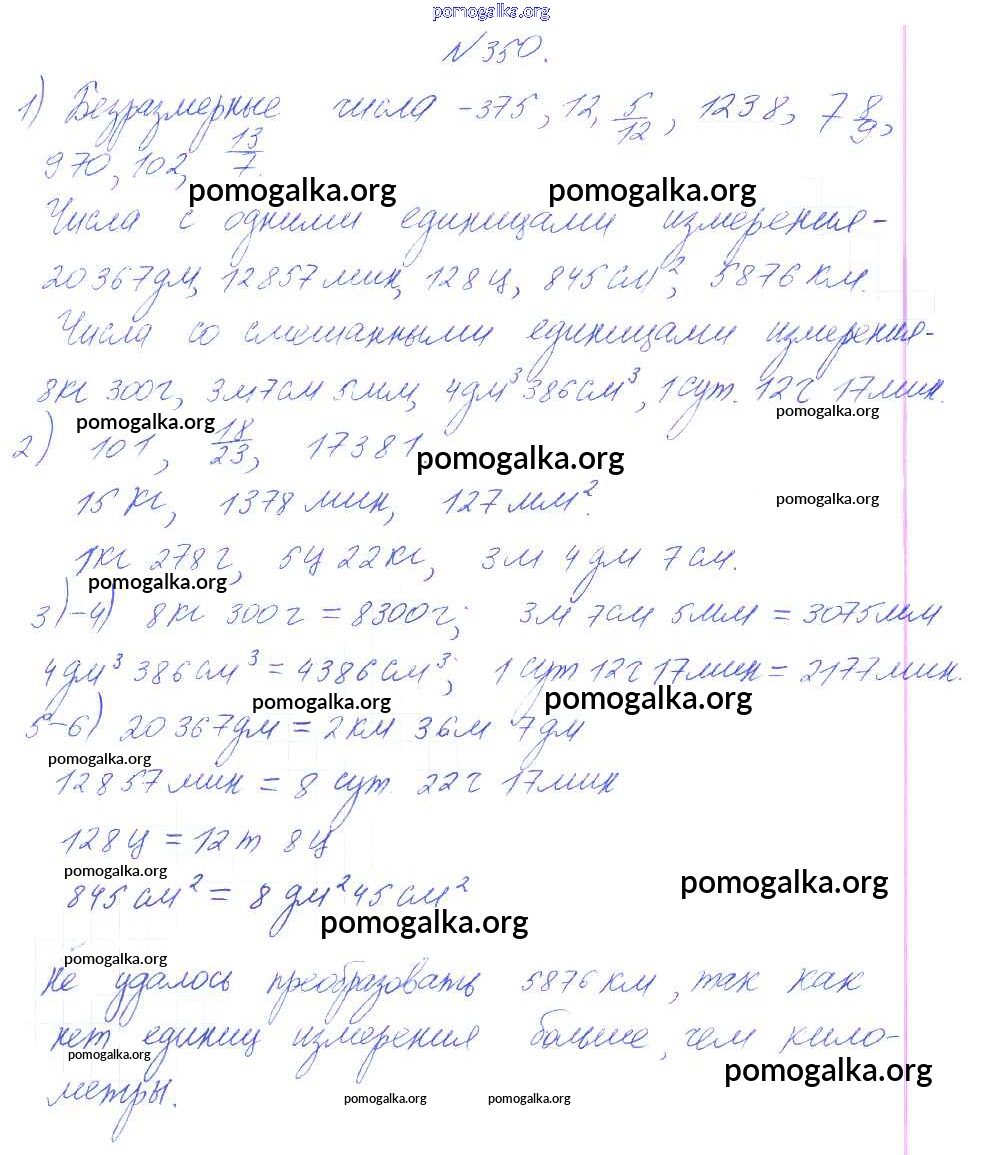 pomogalka.org
№350.
1) Безразмерные числа - 375, 12, 5/12, 1238, 7 8/9,
970, 102, 13/7.
pomogalka.org pomogalka.org
Числа с одними единицами измерения-
20367дм, 12857мин, 128ц, 845см², 5876км.
Числа со смешанными единицами измерения-
8кг 300г, 3м7см 5мм, 4дм³386см³, 1сут. 12ч 17мин.
pomogalka.org pomogalka.org
2) 101, 18/23, 17381.
pomogalka.org
15кг, 1378мин, 127мм².
pomogalka.org
1кг 278г, 5ц 22кг, 3м 4дм 7см.
pomogalka.org
3)-4) 8кг 300г = 8300г; 3м 7см 5мм = 3075мм
4дм³ 386см³ = 4386см³; 1сут 12ч 17мин = 2177мин.
pomogalka.org pomogalka.org
5-6) 20367дм = 2км 36м 7дм
pomogalka.org
12857мин = 8 сут. 22ч 17мин
128ц = 12т 8ц
pomogalka.org pomogalka.org
845см² = 8дм²45см²
pomogalka.org
pomogalka.org
Не удалось преобразовать 5876км, так как
нет единиц измерения больше, чем кило-
pomogalka.org pomogalka.org
метры.
pomogalka.org pomogalka.org